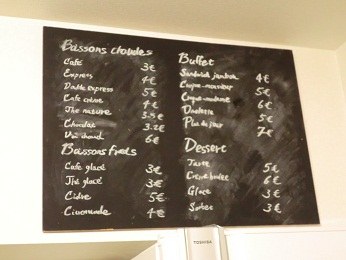 Boissons chaudes
Café 3€
Express 4€
Double express 5€
Café crème 4€
Thé nature 3.5€
Chocolat 3.2€
Vin chaud 6€
Boissons froids
Café glacé 3€
Thé glacé 3€
Cidre 5€
Limonade 4€
Buffet
Sandwich jambon 4€
Croque-monsieur 5€
Croque-madame 6€
Omelette 5€
Plat du jour 7€
Dessert
Tarte 5€
Crème brulée 6€
Glace 3€
Sorbet 3€
TOSHIBA